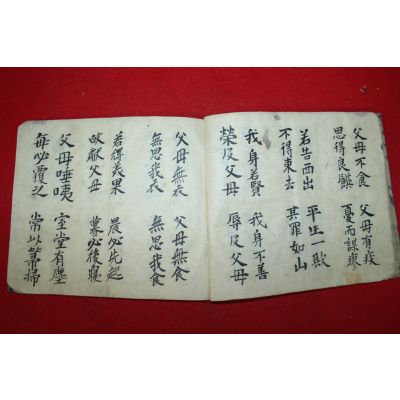 父母不食 父母有疾
思得良饌 憂而謀療
若告西出 平生一欺
不得東去 其罪如山
我身若賢 我身不善
榮及父母 辱及父母
父母無衣 父母無食
無思我衣 無思我食
若得美果 晨必先起
献父母 暮必後寢
父母唾洟 室堂有塵
每必覆之 常以箒掃